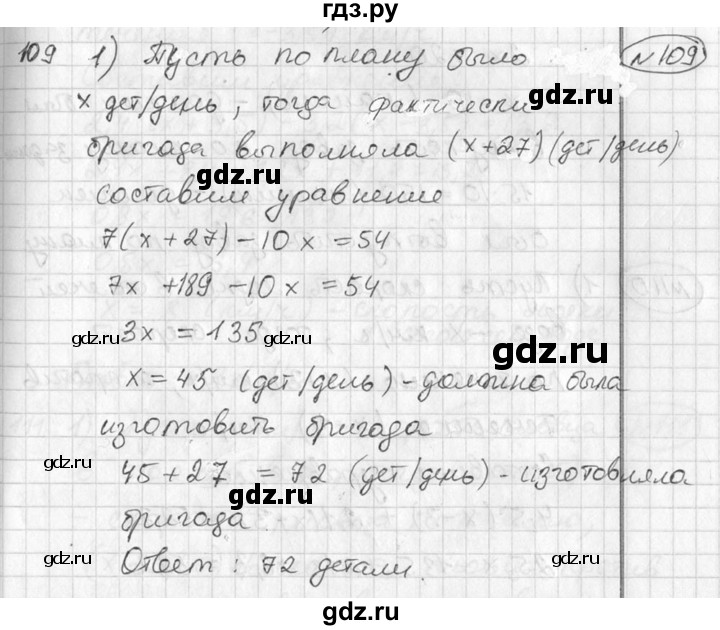 гдз.ру
109 1) Пусть по плану было №109
x дет/день, тогда фактически
бригада выполняла (x+27)(дет/день)
gdz.ru
gdz.ru
составим уравнение
7(x+27)-10x = 54
7x+189-10x = 54
gdz.ru
gdz.ru
gdz.ru
3x = 135
gdz.ru
gdz.ru
x = 45 (дет/день) - должна была
изготовить бригада
gdz.ru
gdz.ru
45+27 = 72 (дет/день) - изготовляла
gdz.ru
бригада
gdz.ru
gdz.ru
gdz.ru
Ответ: 72 детали.
gdz.ru